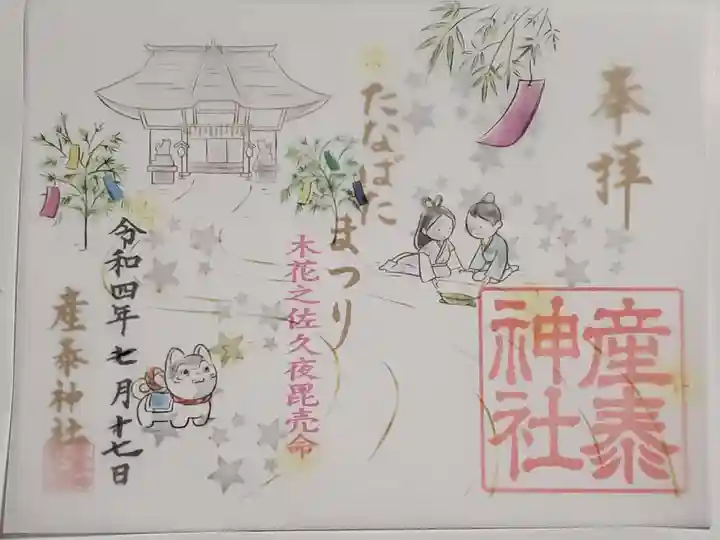 奉拝
産泰
神社
たなばた
まつり
木花之佐久夜毘売命
令和四年七月十七日
産泰神社